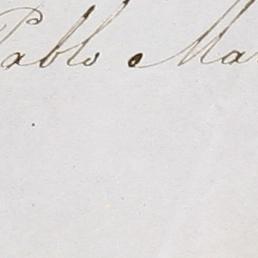 Pablo Ma